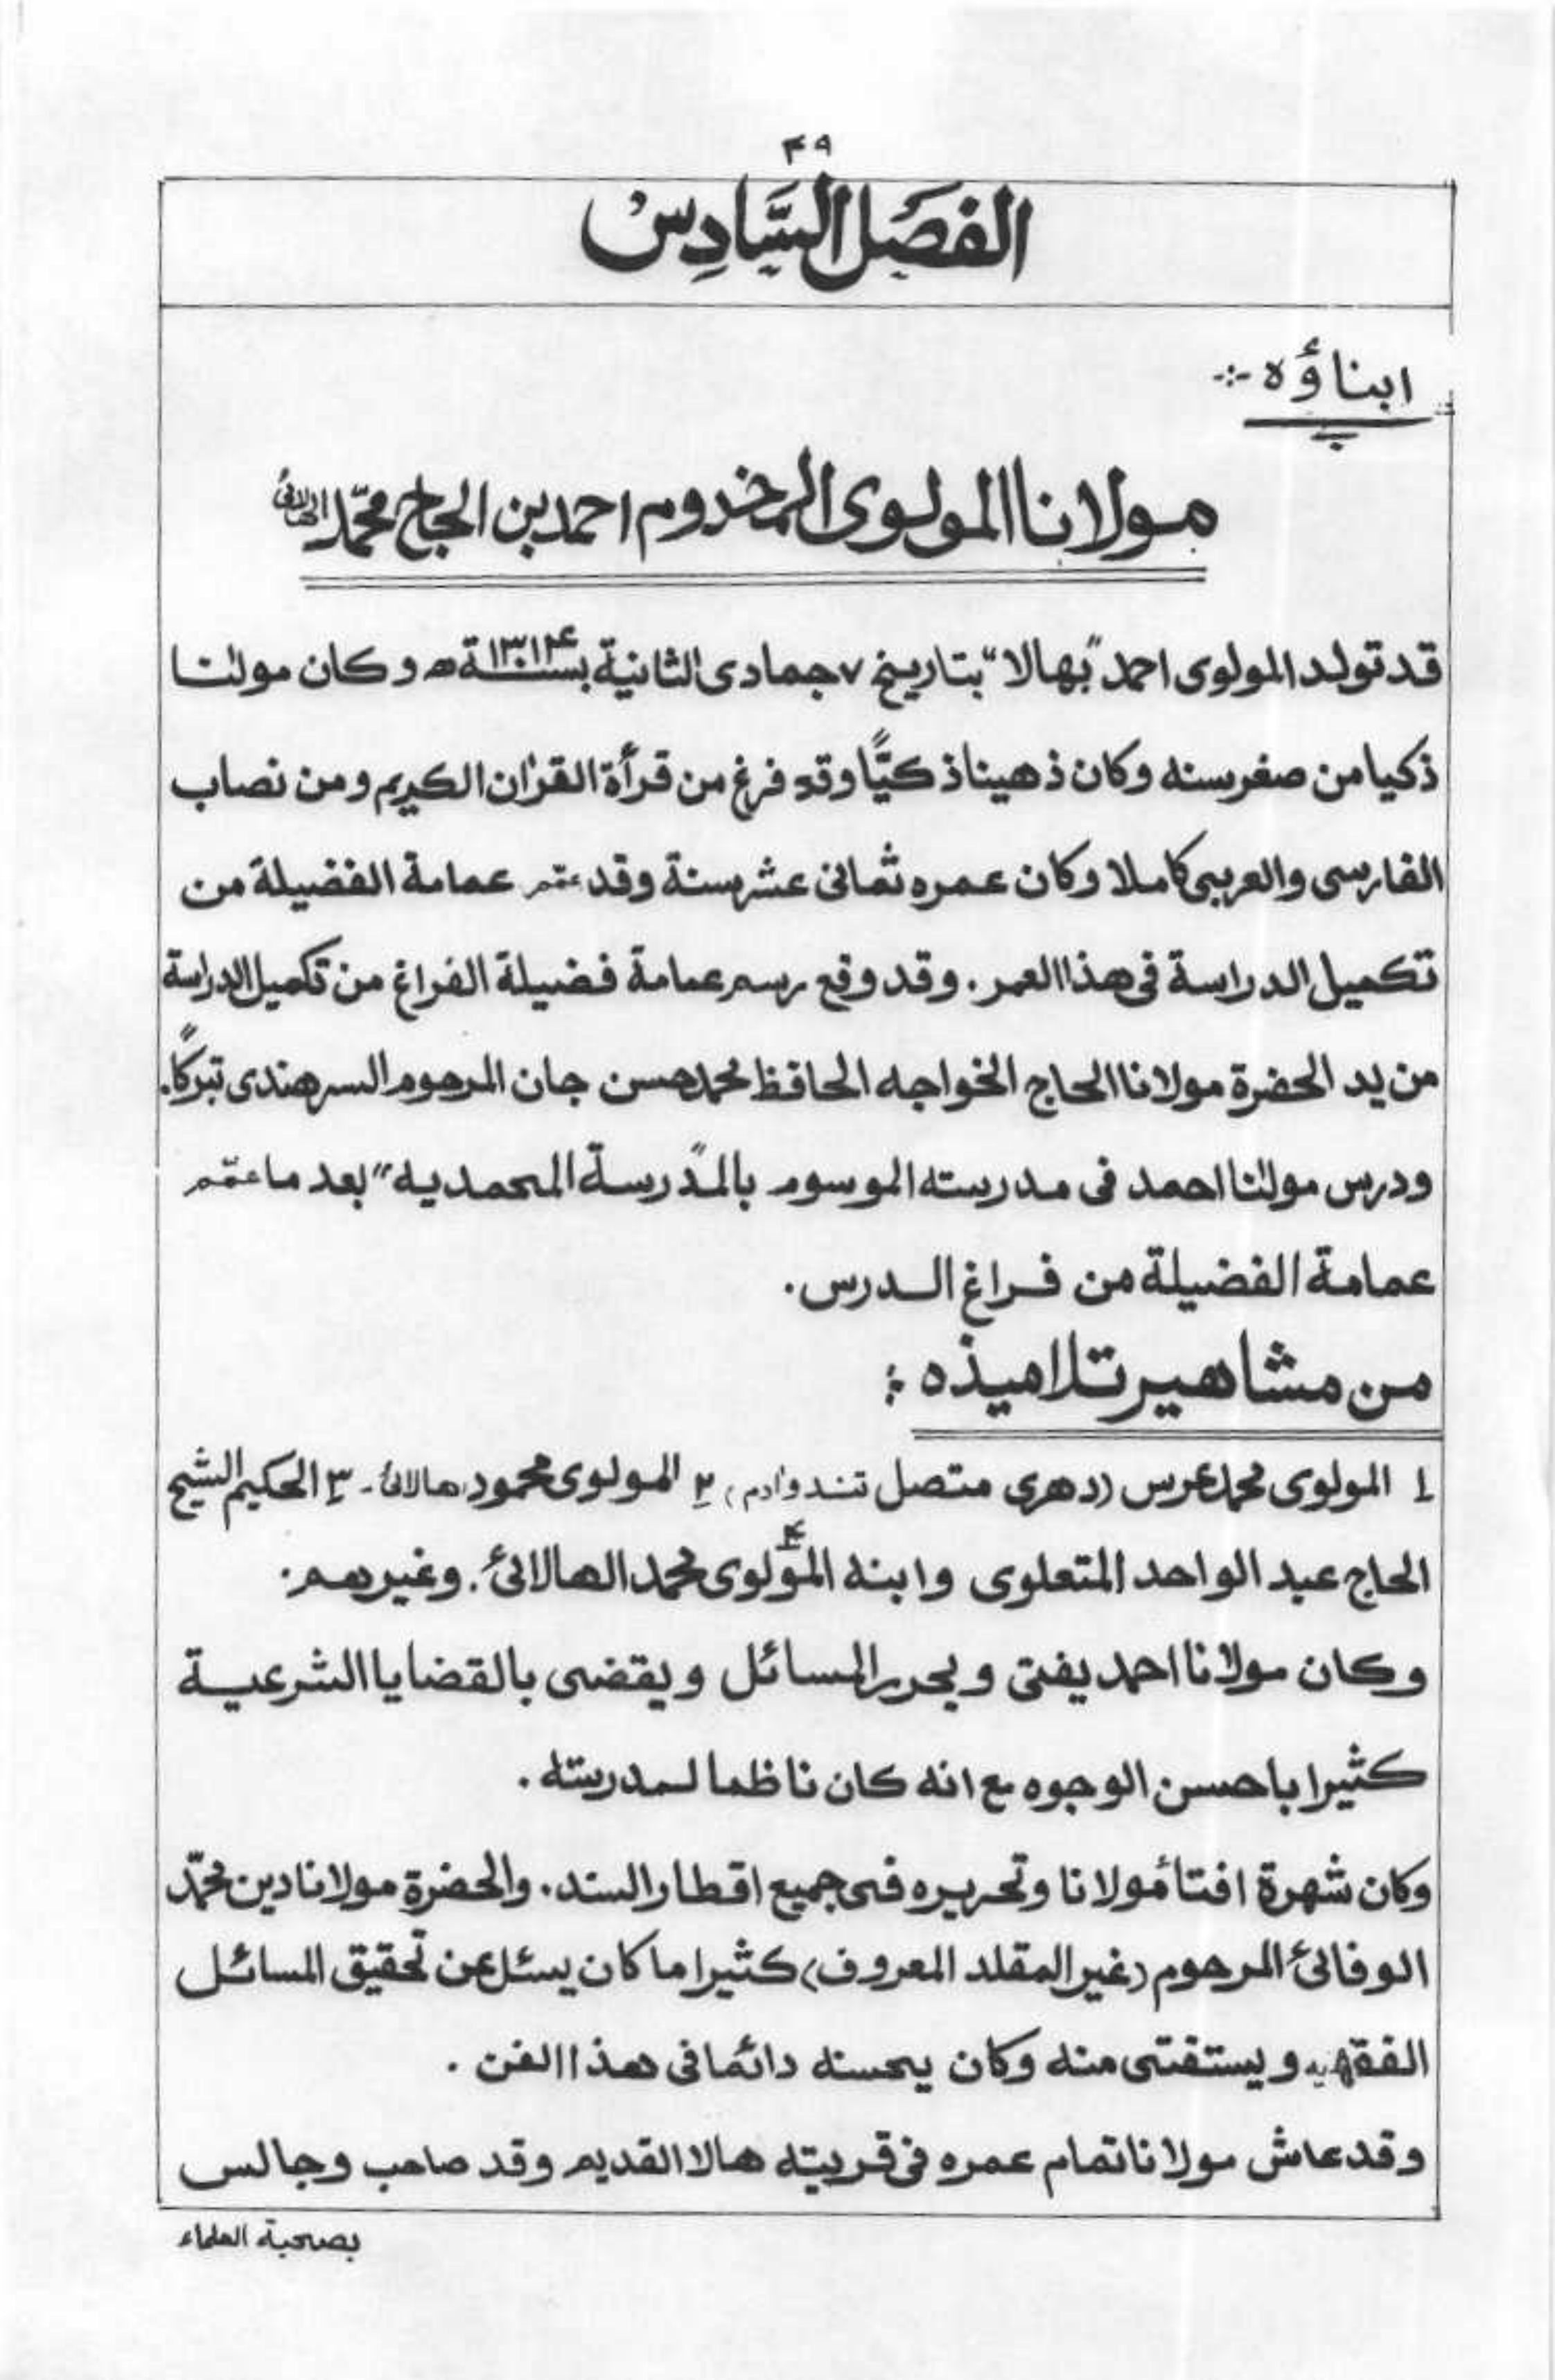 ۴۹
الفصَل السَّادِسْ
ابناؤه :-
مولانا المولوی المخدوم احمد بن الحاج محمّد الهالائیؒ
قد تولد المولوی احمد "بهالا" بتاریخ ۷ جمادی الثانیة بسنة ۱۳۱۴ھ و کان مولٰنا
ذکیا من صغر سنه وکان ذهینا ذکیًّا وقد فرغ من قرأة القرٰان الکریم و من نصاب
الفارسی والعربی کاملا وکان عمره ثمانی عشر سنة وقد عمّم عمامة الفضیلة من
تکمیل الدراسة فی هذا العمر. وقد وقع رسم عمامة فضیلة الفراغ من تکمیل الدراسة
من ید الحضرة مولانا الحاج الخواجه الحافظ محمد حسن جان المرحوم السرهندی تبرکًا.
ودرس مولٰنا احمد فی مدرسته الموسوم "بالمدرسة المحمدیه" بعد ما عمّم
عمامة الفضیلة من فراغ الدرس.
من مشاهیر تلامیذه :
۱ المولوی محمد عرس (دهری متصل تندوآدم) ۲ المولوی محمود هالائی - ۳ الحکیم الشیخ
الحاج عبد الواحد المتعلوی وابنه ۴ المولوی محمد الهالائی. وغیرهم.
وکان مولانا احمد یفتی ویحرر المسائل ویقضی بالقضایا الشرعیة
کثیرا باحسن الوجوه مع انه کان ناظما لمدرسته.
وکان شهرة افتأ مولانا وتحریره فی جمیع اقطار السند. والحضرة مولانا دین محمّد
الوفائی المرحوم (غیر المقلد المعروف) کثیرا ما کان یسئل عن تحقیق المسائل
الفقهیه و یستفتی منه وکان یحسنه دائما فی هذا الفن.
وقد عاش مولانا تمام عمره فی قریته هالا القدیم وقد صاحب وجالس
بصحبة العلماء